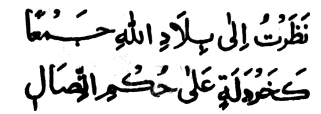 نَظَرْتُ إِلَى بِلَادِ اللهِ جَمْعًا
كَخَرْدَلَةٍ عَلَى حُكْمِ اتِّصَالِ